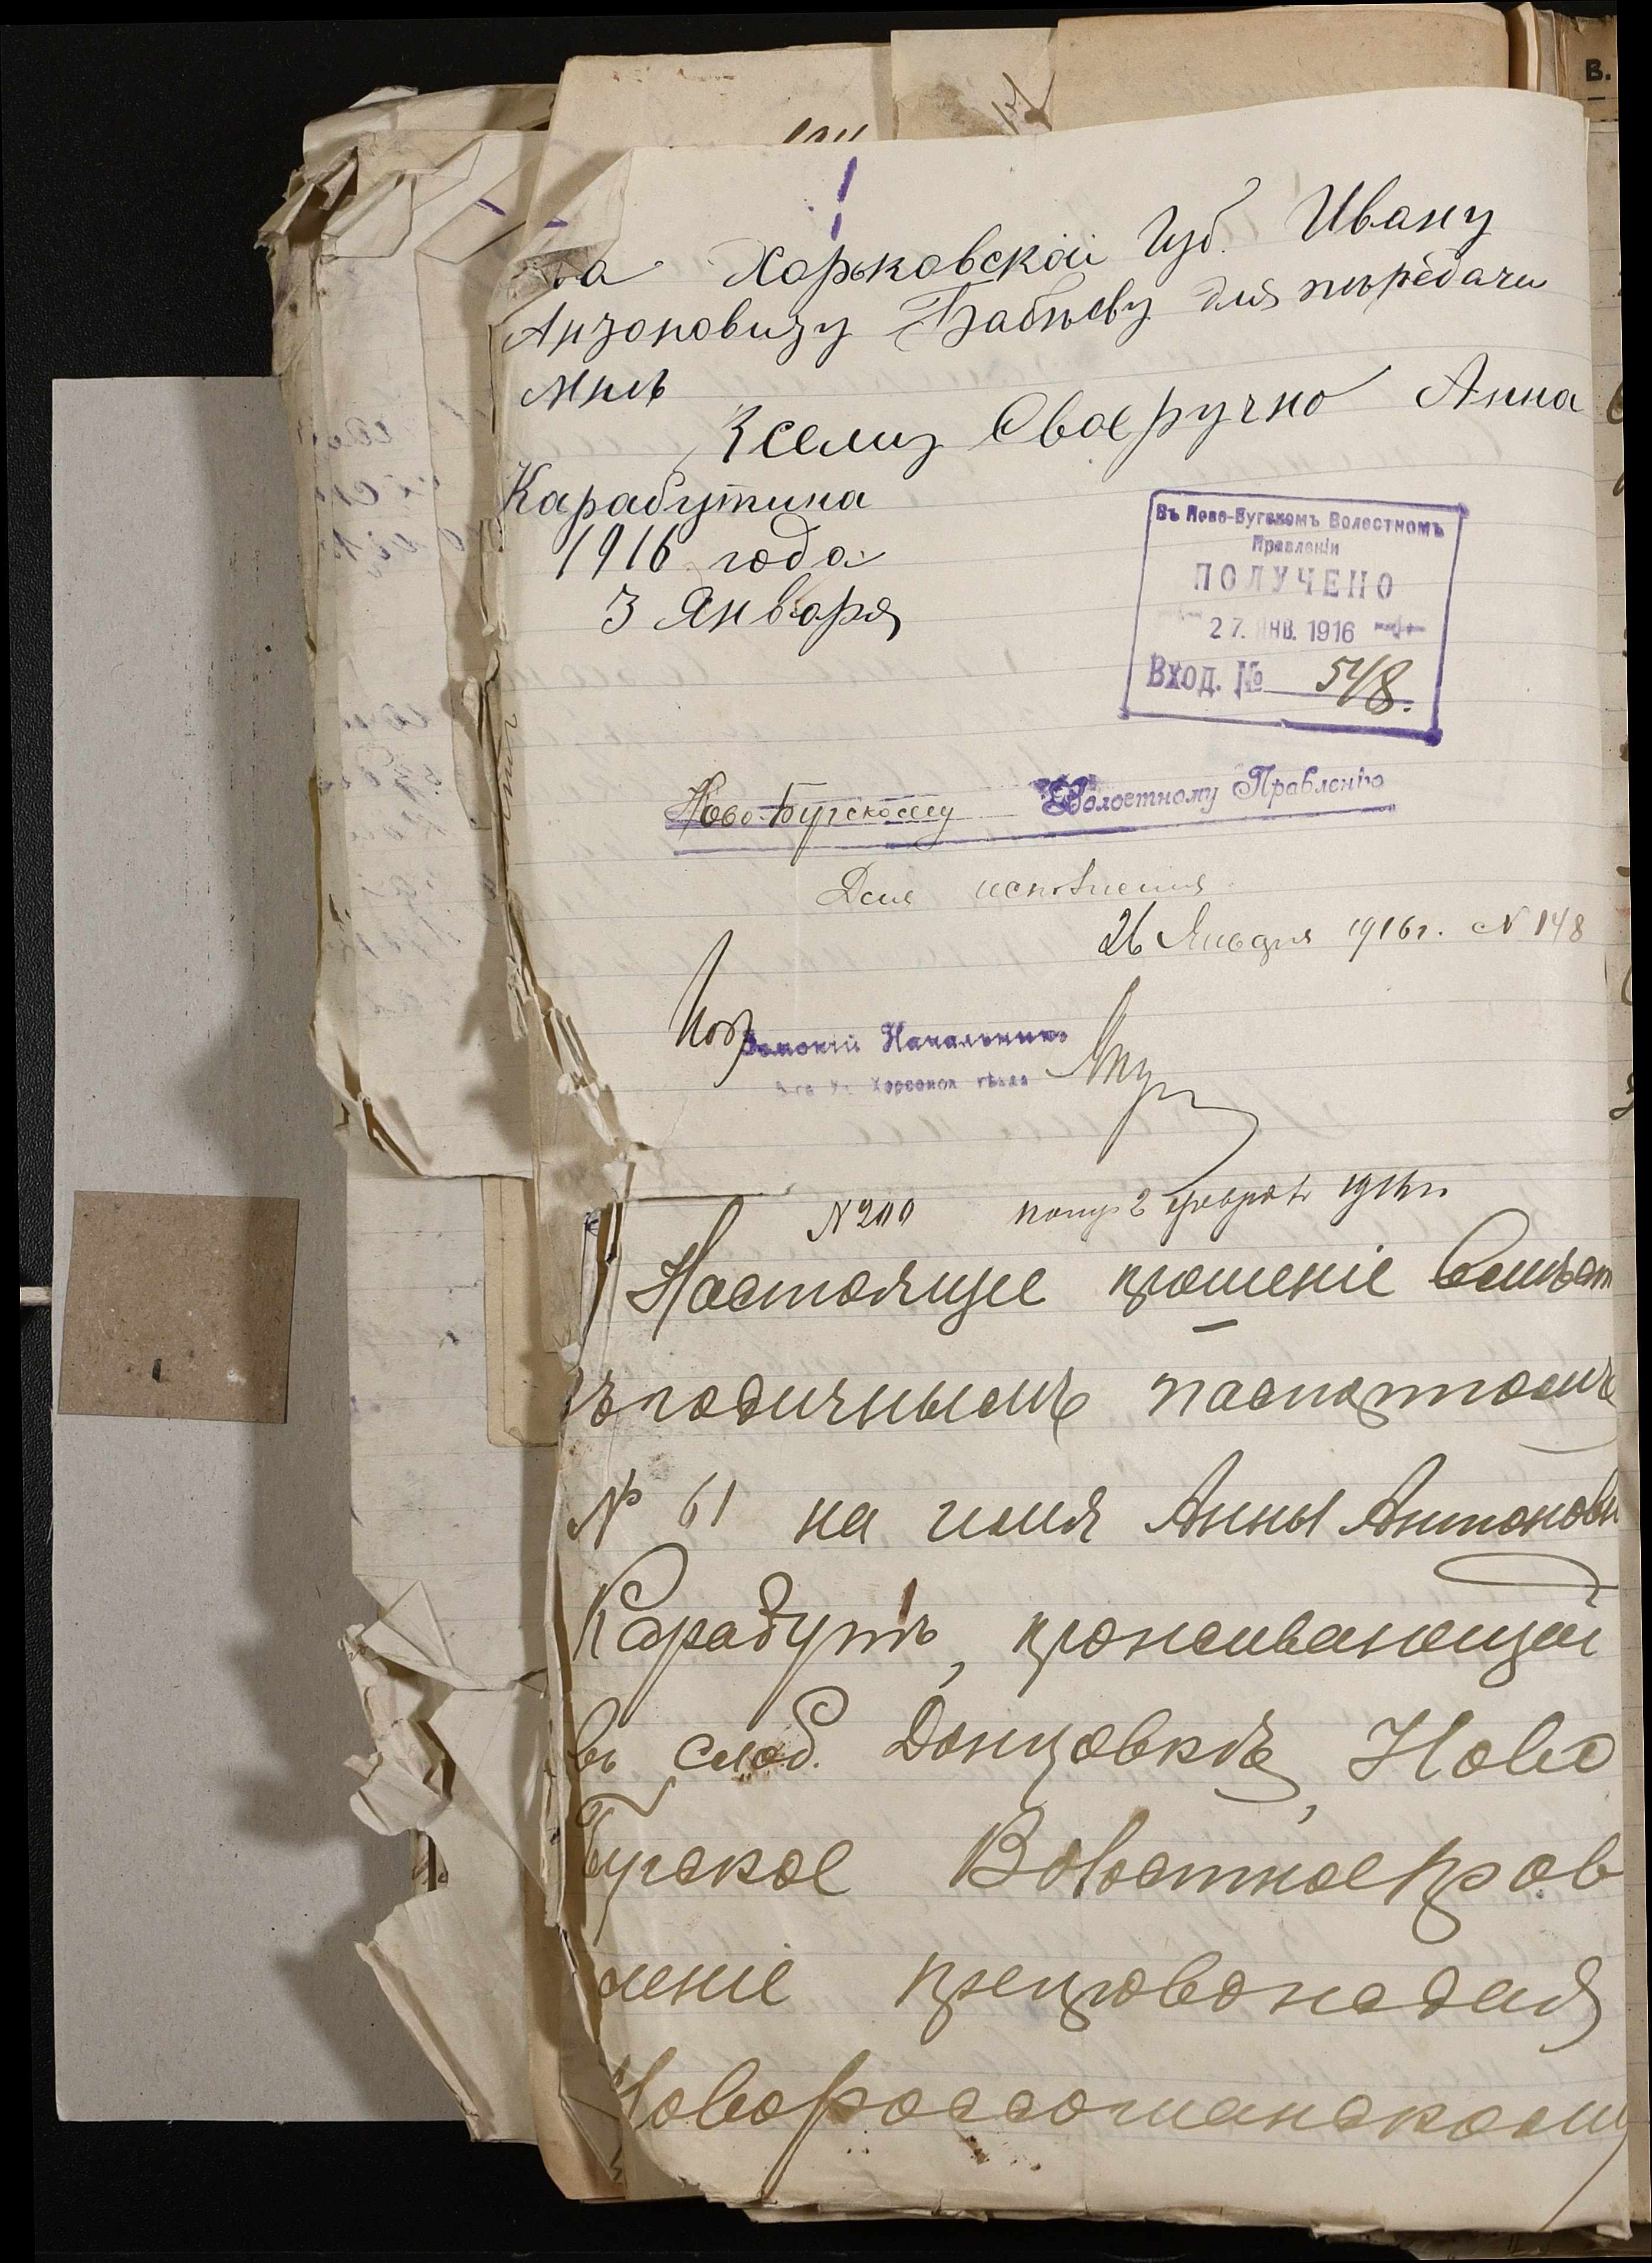 Харьковской Губ. Ивану
Анзоновичу Бабъеву для пърѐдачи
Мнѣ
Ксему Своеручно Анна
Карабутина
1916 года
3 Января
Въ Ново-Бугскомъ Волостномъ
Правленіи
ПОЛУЧЕНО
27. ЯНВ. 1916
Вход. № 548.
Ново-Бугскому Волостному Правленію
Для исполненія
26 Января 1916 г. N 148
Земскій Начальникъ
N 200 получ 2 февраля 1916 г.
Настоящее прошеніе вмѣст
съ годичнымъ паспортомъ
№ 61 на имя Анны Антонов
Карабутъ, проживающей
въ слоб. Донцовкѣ, Ново
Бугское Волостное прав
леніе препровождая
Новороссошанскому